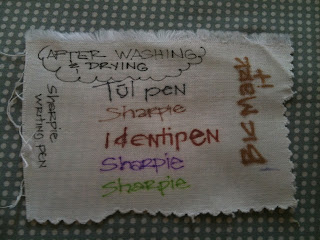 AFTER WASHING
& DRYING
Tül pen
Sharpie
Identipen
Sharpie
Sharpie
Sharpie
writing pen
Bic Mark it